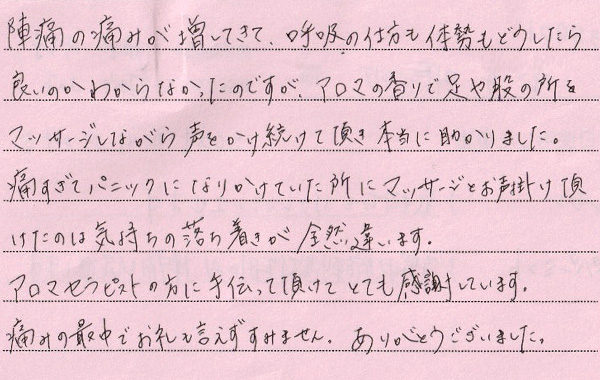 陣痛の痛みが増してきて、呼吸の仕方も体勢もどうしたら
良いのかわからなかったのですが、アロマの香りで足や股の所を
マッサージしながら声をかけ続けて頂き本当に助かりました。
痛すぎてパニックになりかけていた所にマッサージとお声掛け頂
けたのは気持ちの落ち着きが全然違います。
アロマセラピストの方に手伝って頂けてとても感謝しています。
痛みの最中でお礼も言えずすみません。ありがとうございました。